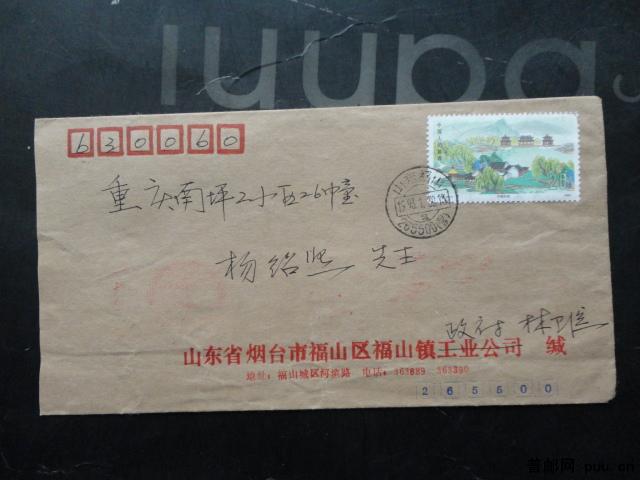 630060
重庆南坪2小区26幢
杨绍熙 先生
山东福山
265500(支)
政府 林卫
山东省烟台市福山区福山镇工业公司 缄
地址：福山城区河滨路 电话：363889 363390
265500
普邮网 puu.cn